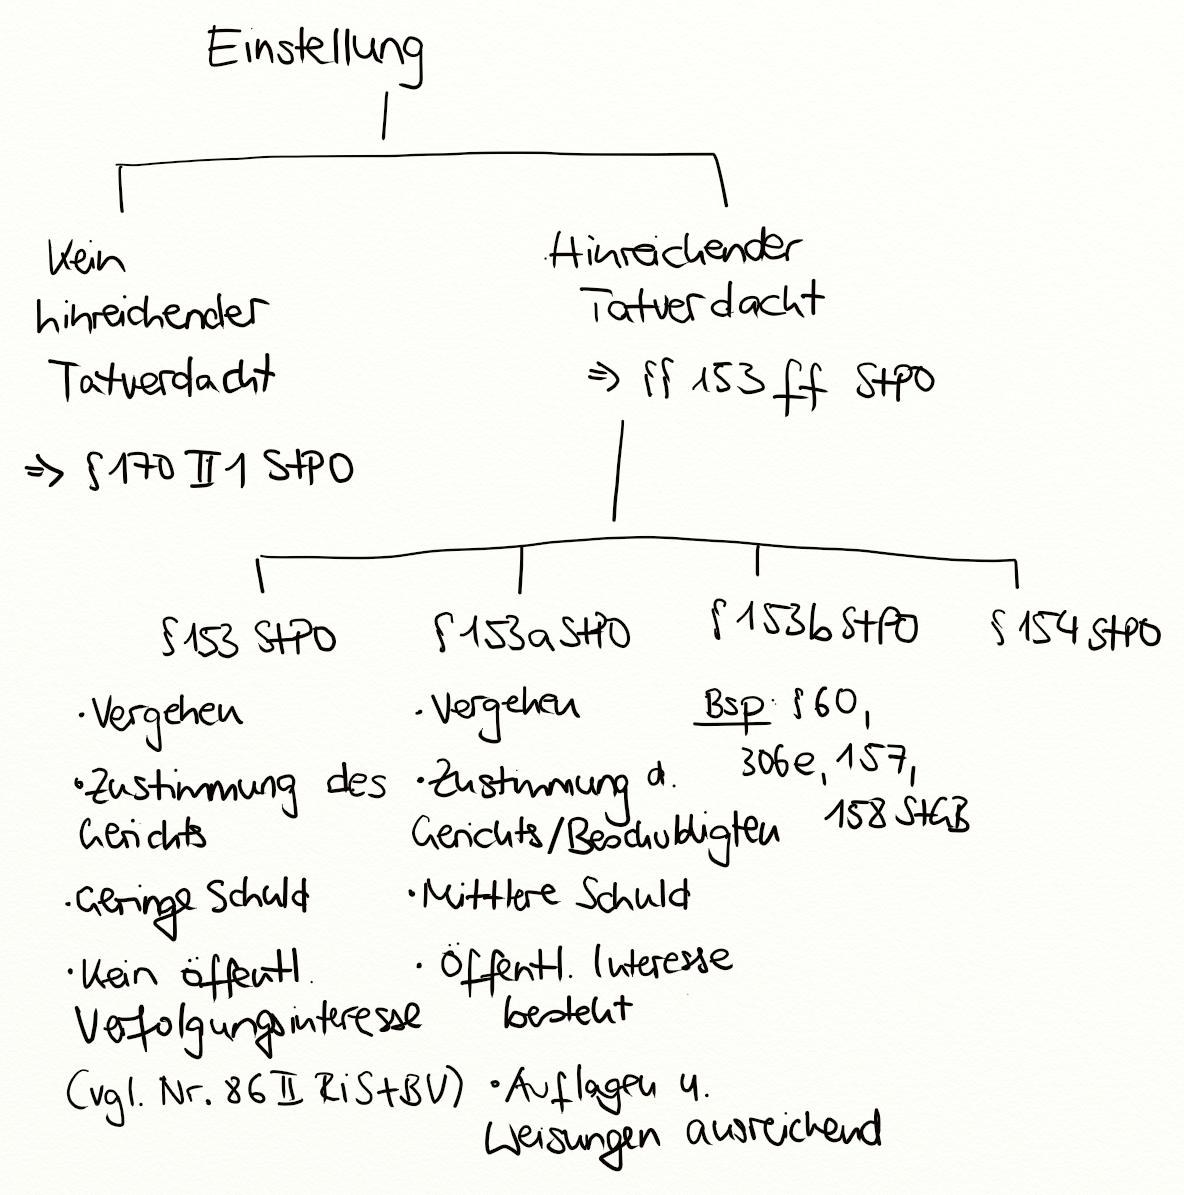 Einstellung
Kein
hinreichender
Tatverdacht
⇒ § 170 II 1 StPO
Hinreichender
Tatverdacht
⇒ §§ 153 ff StPO
§ 153 StPO
· Vergehen
· Zustimmung des
Gerichts
· Geringe Schuld
· Kein öffentl.
Verfolgungsinteresse
(vgl. Nr. 86 II RiStBV)
§ 153a StPO
· Vergehen
· Zustimmung d.
Gerichts/Beschuldigten
· Mittlere Schuld
· Öffentl. Interesse
besteht
· Auflagen u.
Weisungen ausreichend
§ 153b StPO
Bsp: § 60,
306e, 157,
158 StGB
§ 154 StPO